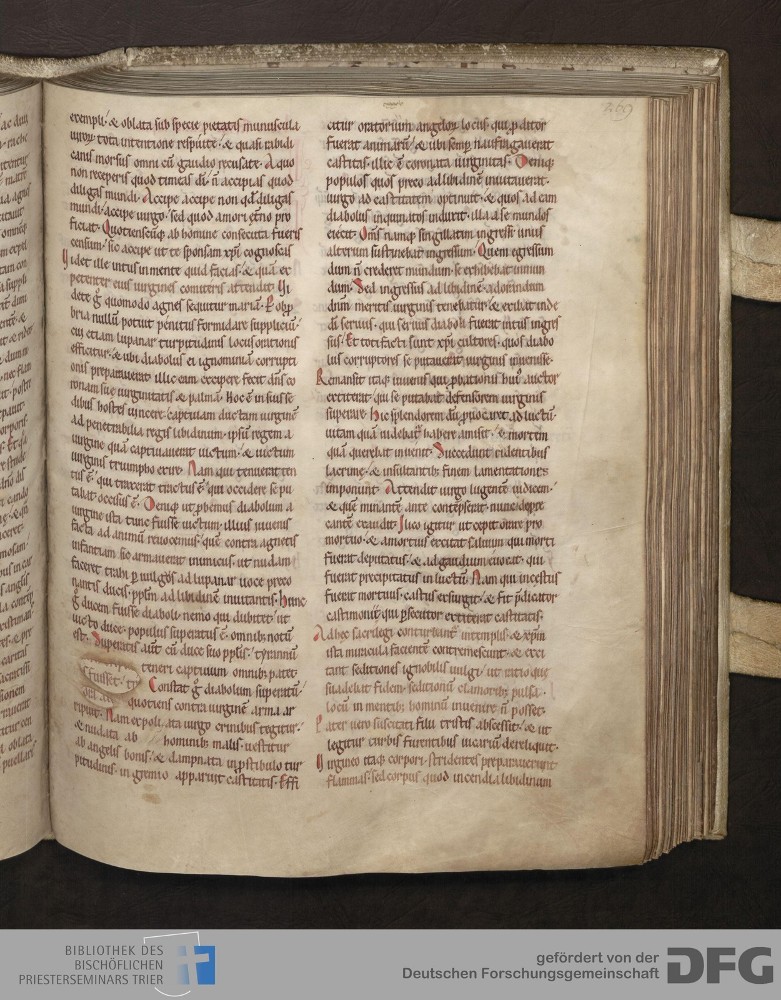 exempli · & oblata sub specie pietatis munuscula
tota intentione respuite · & quasi rabidi
canis morsus omni cū gaudio recusate · A quo
non receperis quod timeas di · n̄ accipias quod
diligas mundi · Accipe accipe non qd̄ diligas
mundi · accipe uirgo · sed quod amori pro
ficiat · ab homine consecuta fueris
censum · sic accipe ut te sponsam xp̄i cognoscas
Videt ille intus in mente quid facias · & quā ex
petenter eius uirgines comiteris attendit · Vi
dete g quomodo agnes sequitur mariā ·
bria nullū potuit penitus formidare suppliciū ·
cui etiam lupanar turpitudinis locus orationis
efficitur · & ubi diabolus ei ignominiā corrupti
onis preparauerat · illic eam excipere fecit dn̄s co
ronam suę uirginitatis & palmā · Hoc ē in suis se
dibus hostes uincere · captiuam ductam uirginē
ad penetrabilia regis libidinum · ipsū regem a
uirgine quā captiuauerat uictum · & uictum
uirginis triumpho exire · Nam qui tenuerat ten
tus ē · qui traxerat tractus ē · qui occidere se pu
tabat occisus ē · Deniq ut p̄bemus diabolum a
uirgine ista tunc fuisse uictum · illius iuuenis
facta ad animū reuocemus · quē contra agnetis
infantiam sic armauerat inimicus · ut nudam
faceret trahi p uulgos ad lupanar uoce preco
nantis duci · pp̄lm ad libidinē inuitantis · Hunc
g ducem fuisse diaboli nemo qui dubitet · ut
uicto duce · populus superatus ē · omnib; notū
est · Superatis aut cū duce suo pp̄lis · tyrannū
teneri captiuum omnib; patet ·
fuisset · ty Constat g diabolum superatū
quotiens contra uirginē armaar
ripuit · Nam expoli ata uirgo crinibus tegitur ·
& nudata ab hominib; malis · uestitur
ab angelis bonis · & dampnata in p̄stibulo tur
pitudinis · in gremio apparuit castitatis · Effi
269
citur oratorium angeloꝝ locus · qui p̄ditor
fuerat animarū · & ubi semp̄ naufragauerat
castitas · illic ē coronata uirginitas · Deniq
populos quos preco ad libidinē inuitauerat ·
uirgo ad castitatem optinuit · & quos ad eam
diabolus inquinatos induxit · illa a se mundos
eiecit · Om̄s namq singillatim ingressi · unus
alterum sustinebat ingressum · Quem egressum
dum n̄ crederet mundum · se exhibebat inmun
dum · Sed ingressus ad libidinē · ad orandum
dn̄m meritis uirginis tenebatur · & exibat inde
di seruus · qui seruus diaboli fuerat intus ingres
sus · Et tot facti sunt xp̄i cultores · quos diabo
lus corruptores se putauerat uirginis inuenisse ·
Remansit itaq iuuenis qui p̄bationis hui auctor
extiterat · qui se putabat defensorem uirginis
superare · Hic splendorem dū puocaret ad luctū ·
uitam quā uidebat habere amisit · & mortem
quā querebat inuenit · Succedunt ridentibus
lacrimę · & insultantib; finem lamentationis
imponunt · Attendit uirgo lugentē iudicem ·
& quē minantē ante contēpserat · nunc depre
cantē exaudit · Iuco igitur ut cepit orare pro
mortuo · & a mortuis excitat saluum qui morti
fuerat deputatus · & ad gaudium euocat · qui
fuerat precipitatus in luctū · Nam qui incestus
fuerat mortuus · castus exsurgit · & fit p̄dicator
castimonię qui p̄secutor extiterat castitatis ·
Ad hęc sacrilegi conturbant in templis · & xp̄m
ista miracula facientē contremescunt · & exci
tant seditiones ignobilis uulgi · ut ratio quę
suadebat fidem · seditionū clamorib; pulsa ·
locū in mentib; hominū inuenire n̄ posset ·
Pater uero suscitati filii tristis abscessit · & ut
legitur turbis furentibus uicariū dereliquit ·
Virgineo itaq corpori stridentes preparauerunt
flammas · sed corpus quod incendia libidinum
BIBLIOTHEK DES
BISCHÖFLICHEN
PRIESTERSEMINARS TRIER
gefördert von der
Deutschen Forschungsgemeinschaft
DFG